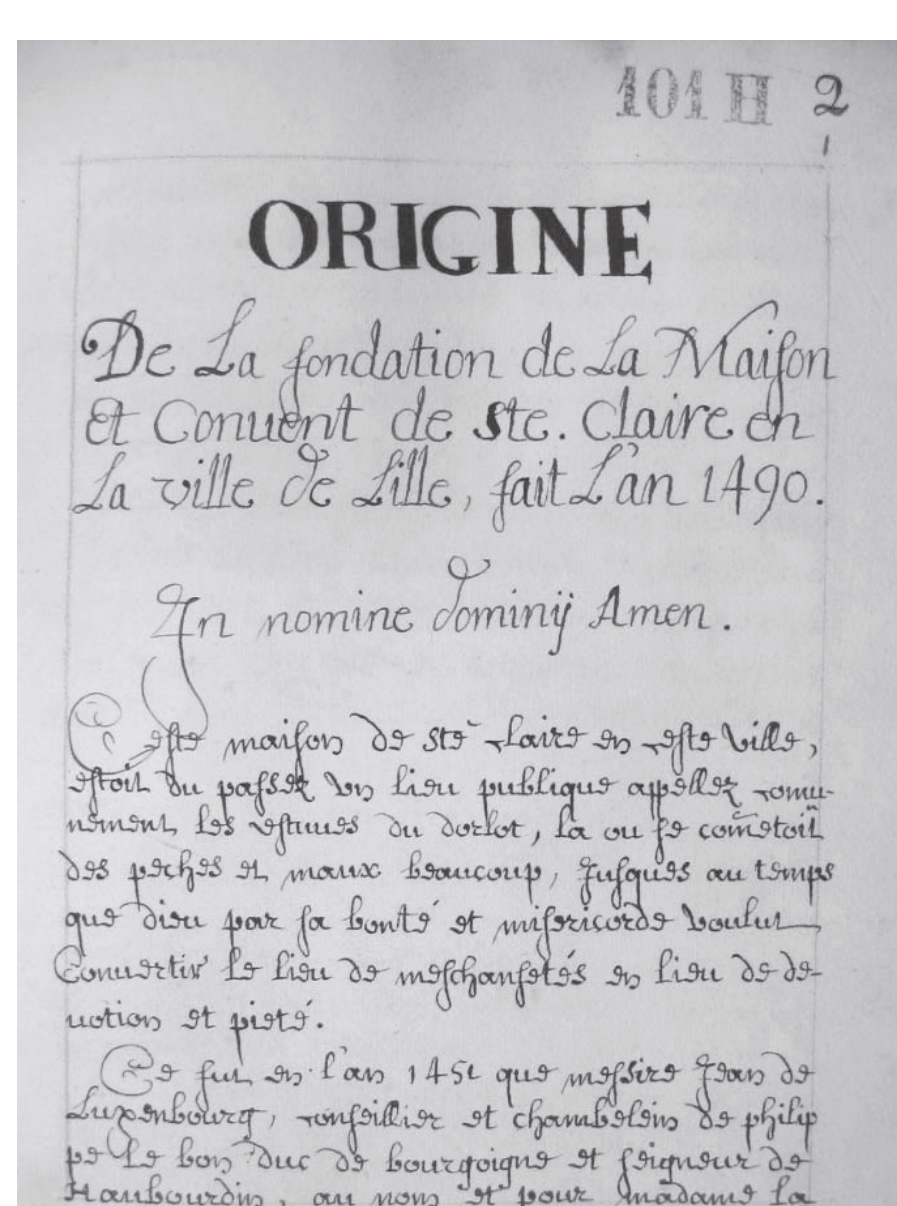 101 H 2
1
ORIGINE
De La fondation de La Maison
et Conuent de ste. Claire en
La ville de Lille, fait L'an 1490.
In nomine dominÿ Amen.
Ceste maison de ste claire en ceste ville,
estoit du passez vn lieu publique apellez comu-
nement les estuues du dorlot, la ou se cometoit
des peches et maux beaucoup, Jusques au temps
que dieu par sa bonté et misericorde voulut
Conuertir le lieu de meschansetés en lieu de de-
uotion et pieté.
Ce fut en l'an 145 que messire Jean de
Luxenbourg, conseillier et chambelein de philip
pe Le bon duc de bourgoigne et seigneur de
Haubourdin, au nom et pour madame la